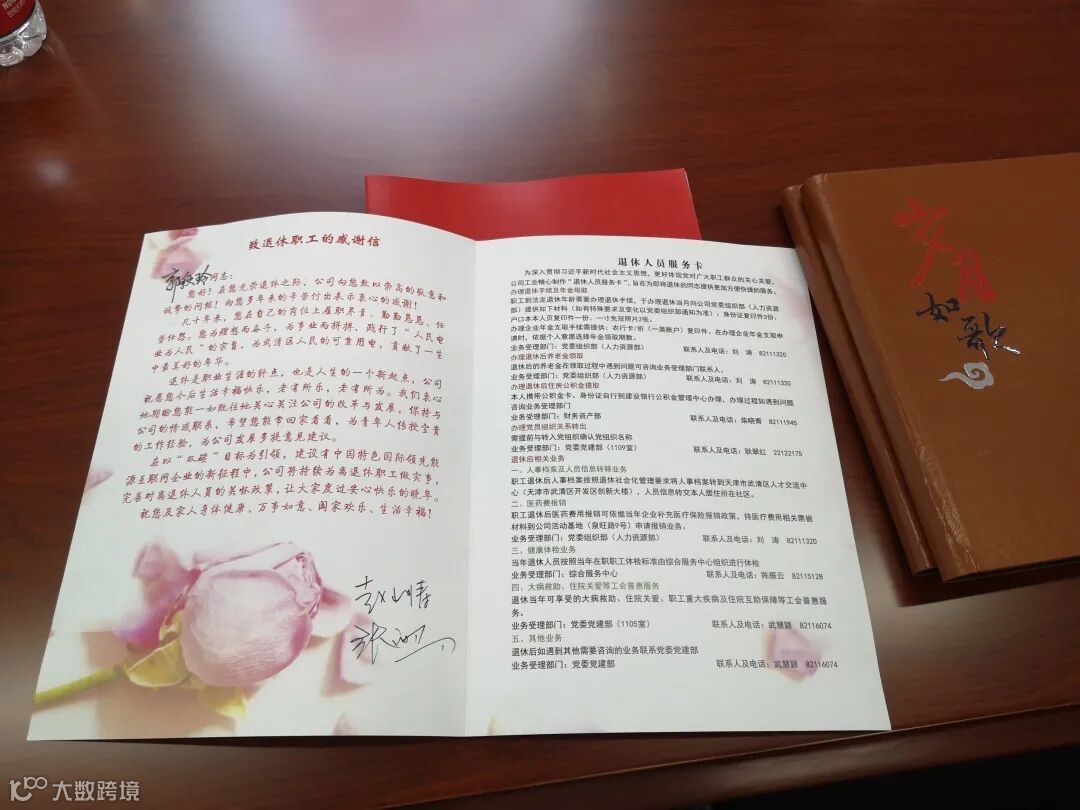 致退休职工的感谢信
同志：
您好！在您光荣退休之际，公司向您致以崇高的敬意和
诚挚的问候！向您多年来的辛苦付出表示衷心的感谢！
几十年来，您在自己的岗位上履职尽责、勤勤恳恳、任
劳任怨。您为理想而奋斗，为事业而拼搏，践行了“人民电
业为人民”的宗旨，为武清区人民的可靠用电，贡献了一生
中最美好的年华。
退休是职业生涯的终点，也是人生的一个新起点，公司
祝愿您今后生活幸福快乐，老有所乐，老有所为。我们衷心
地期盼您能一如既往地关心关注公司的改革与发展，保持与
公司的情感联系，希望您能常回家看看，为青年人传授宝贵
的工作经验，为公司发展多提意见建议。
在以“双碳”目标为引领，建设有中国特色国际领先能
源互联网企业的新征程中，公司将持续为离退休职工做实事，
完善对离退休人员的关怀政策，让大家度过安心快乐的晚年。
祝您及家人身体健康、万事如意、阖家欢乐、生活幸福！
退休人员服务卡
为深入贯彻习近平新时代社会主义思想，更好体现党对广大职工群众的关心关爱，
公司工会精心制作“退休人员服务卡”，旨在为即将退休的同志提供更加方便快捷的服务。
办理退休手续及年金领取
职工到法定退休年龄需要办理退休手续，于办理退休当月向公司党委组织部（人力资源
部）提供如下材料（如有特殊要求及变化以党委组织部通知为准），身份证复印件3份，
户口本本人页复印件一份、一寸免冠照片2张。
办理企业年金支取手续需提供：农行卡/折（一类账户）复印件。在办理企业年金支取申
请时，依据个人意愿选择年金领取期数。
业务受理部门：党委组织部（人力资源部） 联系人及电话：刘 涛 82111320
办理退休后养老金领取
退休后的养老金在领取过程中遇到问题可咨询业务受理部门联系人。
业务受理部门：党委组织部（人力资源部） 联系人及电话：刘 涛 82111320
办理退休后住房公积金提取
本人携带公积金卡、身份证自行到建设银行公积金管理中心办理，办理过程如遇到问题
咨询业务受理部门
业务受理部门：财务资产部 联系人及电话：柴晓青 82111945
办理党员组织关系转出
需提前与转入党组织确认党组织名称
业务受理部门：党委党建部（1109室） 联系人及电话：耿翠红 22122175
退休后相关业务
一、人事档案及人员信息转移业务
职工退休后人事档案按照退休社会化管理要求将人事档案转到天津市武清区人才交流中
心（天津市武清区开发区创新大楼），人员信息转交本人居住所在社区。
二、医药费报销
职工退休后医药费用报销可依据当年企业补充医疗保险报销政策，待医疗费用相关票据
材料到公司活动基地（泉旺路9号）申请报销业务。
业务受理部门：党委组织部（人力资源部） 联系人及电话：刘 涛 82111320
三、健康体检业务
当年退休人员按照当年在职职工体检标准由综合服务中心组织进行体检
业务受理部门：综合服务中心 联系人及电话：陈振云 82115128
四、大病救助、住院关爱等工会普惠服务
退休当年可享受的大病救助、住院关爱、职工重大疾病及住院互助保障等工会普惠服
务。
业务受理部门：党委党建部（1105室） 联系人及电话：武慧颖 82116074
五、其他业务
退休后如遇到其他需要咨询的业务联系党委党建部
业务受理部门：党委党建部 联系人及电话：武慧颖 82116074
岁月
如歌
大数跨境